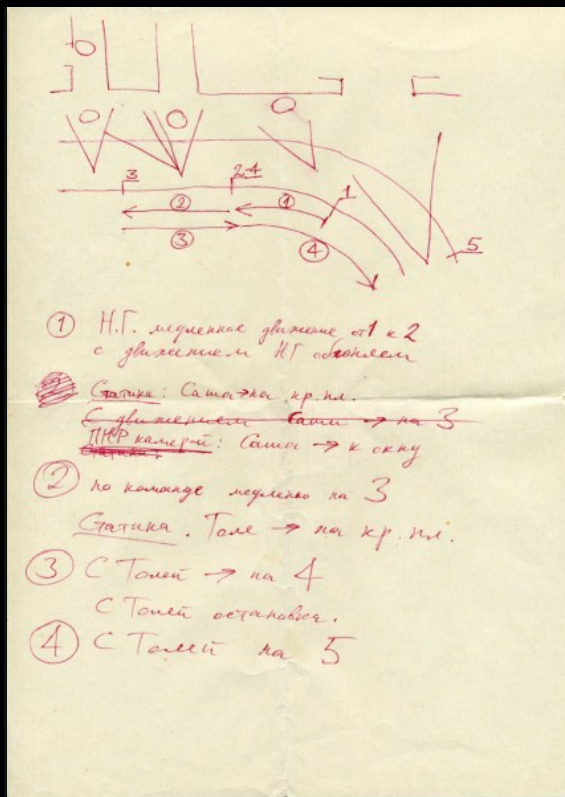 3
2-4
1
2
1
3
4
5
1 Н.Г. медленное движение от 1 к 2
с движением НГ обгоняем
Статика: Саша → на кр. пл.
С движением Саши → на 3
ПНР камерой: Саша → к окну
Статика:
2 по команде медленно на 3
Статика. Толя → на кр. пл.
3 С Толей → на 4
С Толей остановка.
4 С Толей на 5